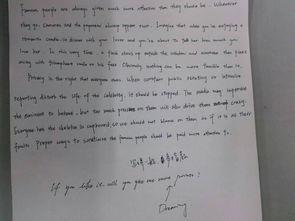 Famous people are always given much more attention than they should be. Wherever
they go, Cameras and the paparazzi always appear soon. Imagine that when you're enjoying a
romantic candle-lit dinner with your lover and you're about to tell her how much you
love her. In this very time, a flash shoots up outside the window and someone
away with triumphant smile on his face. Obviously nothing can be more terrible than it.
Privacy is the right that everyone owns. When constant public scrutiny or intensive
reporting disturb the life of the celebrity, it should be stopped. The media may supervise
the eminent to behave, but too much pressure on them will also drive them crazy.
Everyone has the skeleton in cupboard, so we should not blame on them as if it is all their
faults. Proper ways to scrutinize the famous people should be paid more attention to.
If you like it, will you give me more
Dreaming